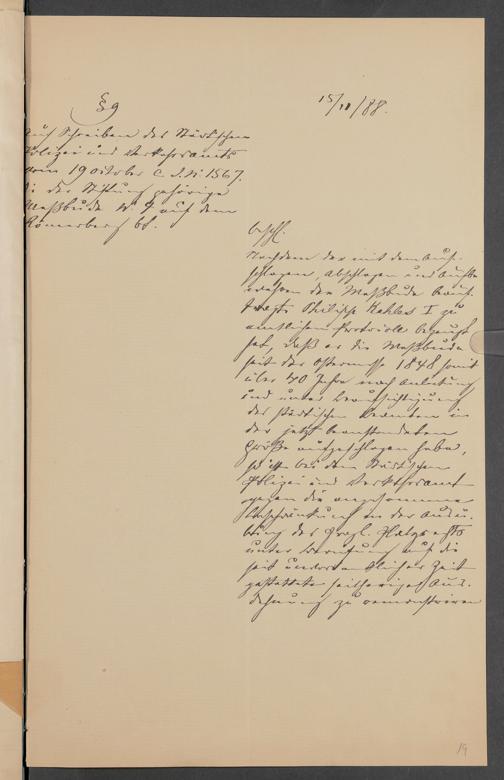 § 9
15/11/88.
Auf Schreiben des Städtischen
Polizei und Verkehrsamts
vom 19 October c. J. N: 1567.
die der Stiftung gehörige
Meßbude N: 9 auf dem
Römerberg btf.
beschl.
Nachdem der mit dem Auf-
schlagen, Abschlagen und Aufbe
wahren der Meßbude beauf-
tragte Philipp I zu
amtlichem Protocoll bezeugt
hat, daß er die Meßbude
seit der Ostermesse 1848 somit
über 40 Jahre nach Anleitung
und unter Beaufsichtigung
der städtischen Beamten in
der jetzt beanstandeten
Größe aufgeschlagen habe,
ist bei dem Städtischen
Polizei und Verkehrsamt
gegen die angesonnene
Beschränkung in der Ausü-
bung des fragl. Platzrechts
unter Berufung auf die
seit unvordenklicher Zeit
gestattete seitherige Aus-
dehnung zu remonstriren
19